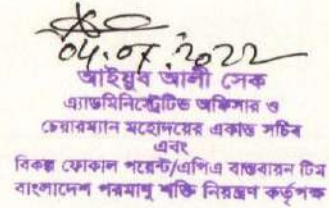 04.07.2022
আইয়ুব আলী সেক
এ্যাডমিনিস্ট্রেটিভ অফিসার ও
চেয়ারম্যান মহোদয়ের একান্ত সচিব
এবং
বিকল্প ফোকাল পয়েন্ট/এপিএ বাস্তবায়ন টিম
বাংলাদেশ পরমাণু শক্তি নিয়ন্ত্রণ কর্তৃপক্ষ